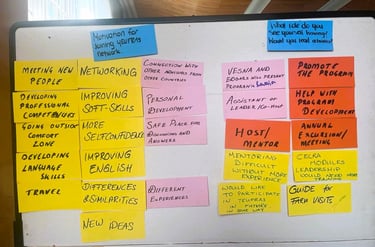 Motivation for
joining
network
MEETING NEW
PEOPLE
DEVELOPING
PROFESSIONAL
COMPETENCIES
GOING OUTSIDE
COMFORT
ZONE
DEVELOPING
LANGUAGE
SKILLS
TRAVEL
NETWORKING
IMPROVING
SOFT-SKILLS
MORE
SELFCONFIDENCE
IMPROVING
ENGLISH
DIFFERENCES
& SIMILARITIES
NEW IDEAS
CONNECTION WITH
OTHER
FROM
OTHER COUNTRIES
PERSONAL
DEVELOPMENT
SAFE PLACE FOR
AND
ANSWERS
DIFFERENT
EXPERIENCES
What role do you
see yourself having?
Would you need
VESNA AND
WILL PRESENT
PROGRAM
ASSISTANT OF
LEADER/CO-HOST
HOST/
MENTOR
MENTORING
DIFFICULT
WITHOUT MORE
EXPERIENCE
WOULD LIKE
TO PARTICIPATE
IN
IN FUTURE
IN SOME WAY
PROMOTE
THE PROGRAM
HELP WITH
PROGRAM
DEVELOPMENT
ANNUAL
EXCURSION/
MEETING
MODULES
LEADERSHIP
WOULD NEED MORE
TRAINING
GUIDE FOR
FARM VISITS